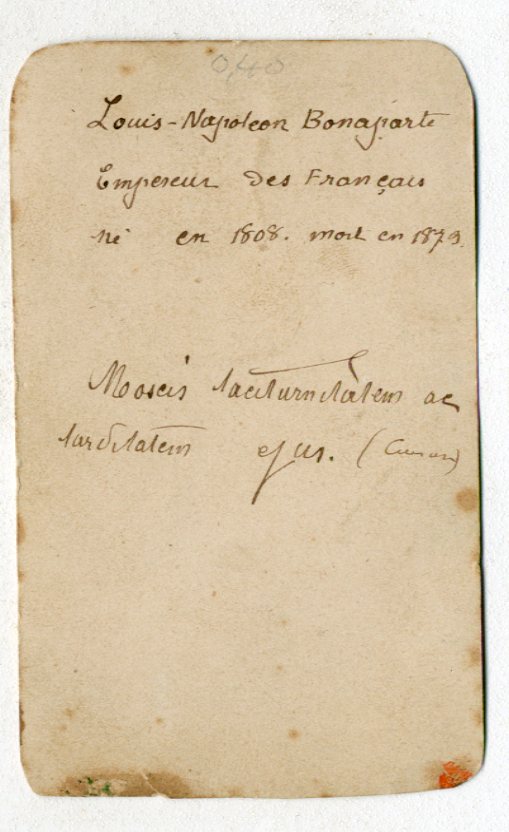 040
Louis-Napoleon Bonaparte
Empereur des Français
né en 1808. mort en 1873.
taciturnitatem ac
tarditatem ejus.